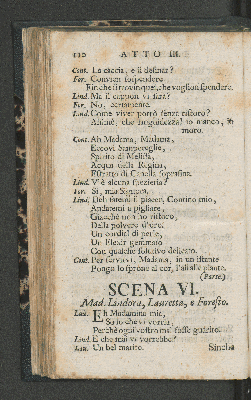 110 ATTO III.
Cont. La caccia, e il desinar?
For. Convien sospendere
Fin che si trovi
Lind. Ma il cappon vi sarà?
For. No, certamente.
Lind. Come viver potrò senza ristoro?
Aimè, che languidezza! io manco, io moro.
Cont. Ah Madama, Madama,
Eccovi Sanpareglie,
Spirito di Melissa,
Acqua della Regina,
Estratto di Canella soprafina.
Lind. V'è alcuna spezieria?
For. Sì, mia Signora.
Lind. Deh fatemi il piacer, Contino mio,
Andatemi a pigliare,
Giacchè non ho ristoro,
Della polvere d'oro,
Un cordial di perle,
Un Elexir gemmato
Con qualche solutivo delicato.
Cont. Per servirvi, Madama, in un istante
Pongo lo sprone al cor, l'ali alle piante.
(Parte.)
SCENA VI.
Mad. Lindora, Lauretta, e Foresto.
Lau. Eh Madamina mia,
So io che vi vorria,
Perchè ogni vostro mal fosse guarito.
Lind. E che mai vi vorrebbe?
Lau. Un bel marito.
Sinchè